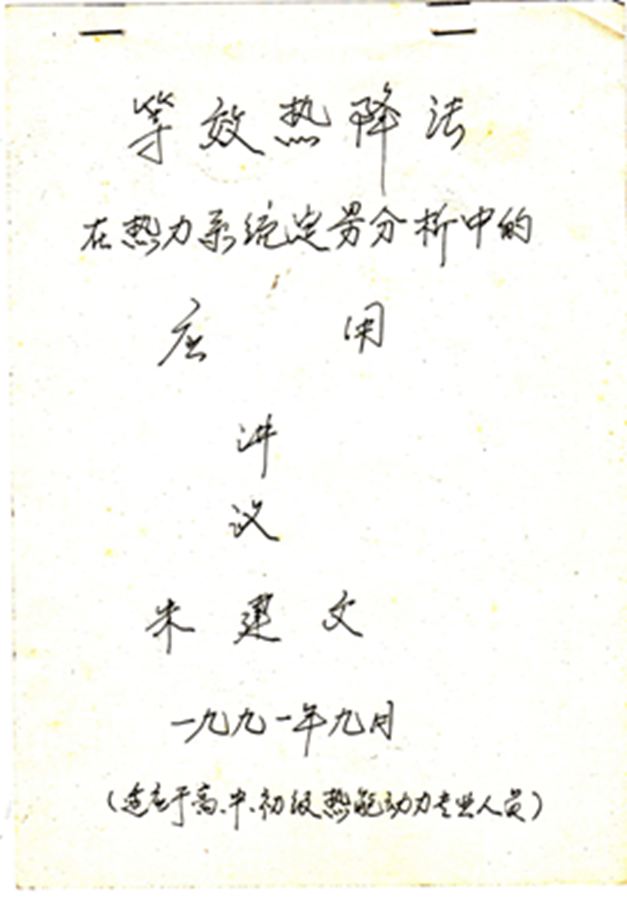 等效热降法
在热力系统定量分析中的
应用
讲
议
朱建文
一九九一年九月
（适应于高、中、初级热能动力专业人员）